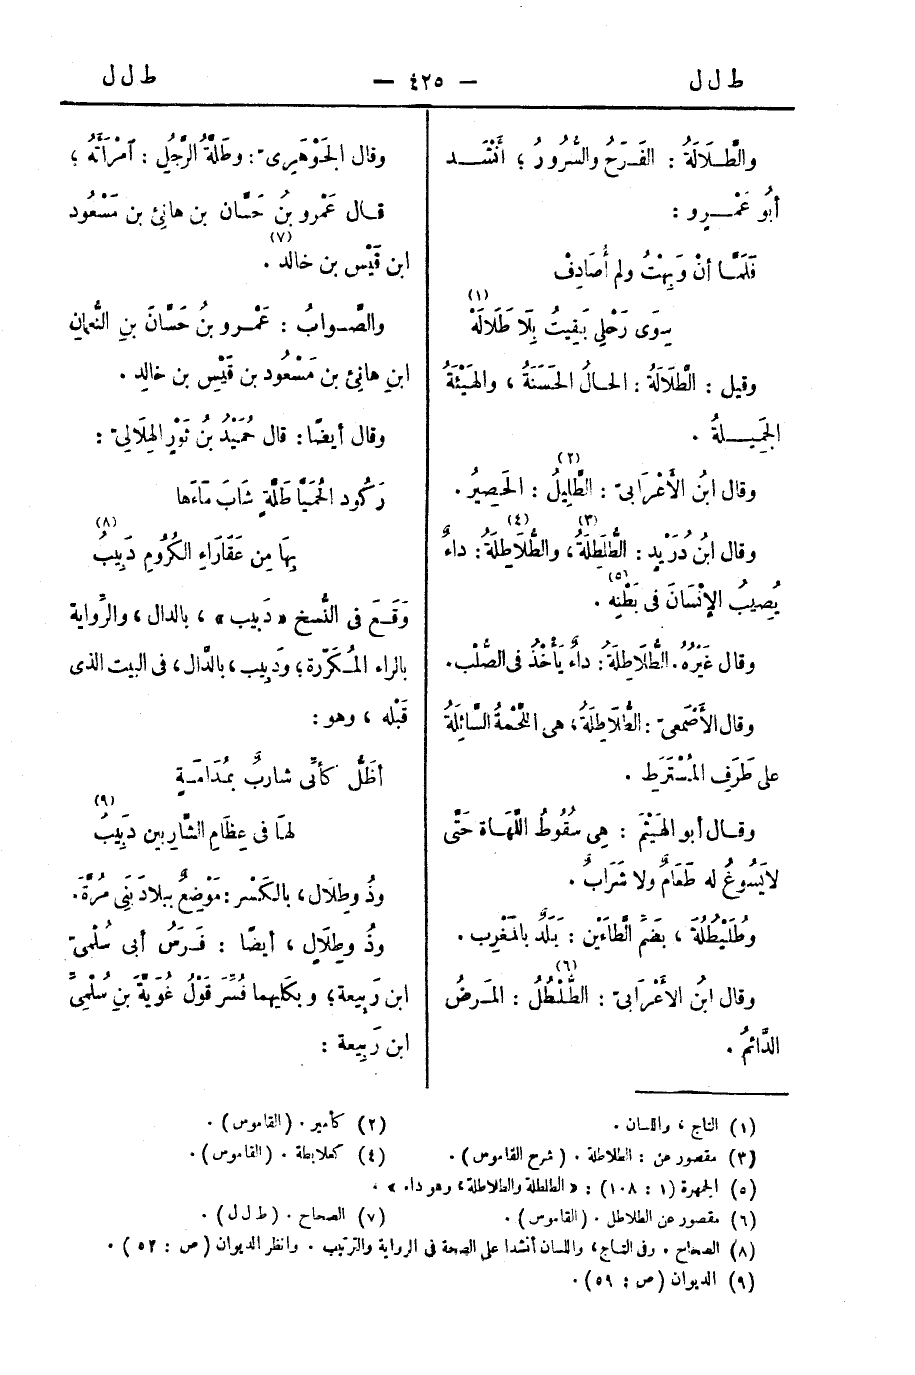 ط ل ل
— ٤٢٥ —
ط ل ل
والطَّـلَالَةُ : الفَـرَحُ والسُّرورُ ؛ أَنْشَـــد
أبُو عَمْــرٍو :
فَلَمَّـا أنْ وَبِهْتُ ولم أُصَادِفْ
سِوَى رَحْلِي بَقِيتُ بِلَا طَلَالَهْ (١)
وقيل : الطَّلَالَةُ : الحالُ الحَسَنَةُ ، والهَيْئَةُ
الجَمِيــــلةُ .
وقال ابنُ الأَعْرَابِىّ : الطَّلِيلُ (٢) : الحَصِيرُ .
وقال ابنُ دُرَيْدٍ : الطُّلَطِلَةُ (٣) ، والطُّلَاطِلَةُ (٤) : داءٌ
يُصِيبُ الإنْسَانَ فى بَطْنِه (٥) .
وقال غَيْرُهُ . الطُّلَاطِلَةُ : داءٌ يَأْخُذُ فى الصُّلْب .
وقال الأَصْمَعىّ : الطُّلاطِلَةُ ، هى اللَّحْمَةُ السَّائِلَةُ
على طَرَفِ المُسْتَرَطِ .
وقـال أبو الهَيْثَمِ : هِى سُقُوطُ اللَّهَاةِ حَتَّى
لايَسُوغُ له طَعَامٌ ولا شَرَابٌ .
وطُلَيْطُلَةُ ، بضَمِّ الطَّاءَيْن : بَلَدٌ بالمَغْرِب .
وقال ابنُ الأعْرَابىّ : الطُّلْطُلُ (٦) : المَـرضُ
الدَّائمُ .
وقال الجَوْهَرِى : وطَلَّةُ الرَّجُلِ : آمْرَأَتُهُ ؛
قـال عَمْرو بنُ حَسَّان بن هانِئ بن مَسْعُود
ابن قَيْس بن خالد (٧) .
والصَّـوابُ : عَمْـرو بنُ حَسَّانَ بنِ النُّعمانِ
ابنِ هانِئ بن مَسْعُود بن قَيْسِ بن خالِد .
وقال أيضًا : قال حُمَيْدُ بنُ ثَوْرٍ الهِلَالِىّ :
رَكُود الحُمَيَّا طَلَّةٍ شَابَ مَاءَها
بِهَا مِن عَقَارَاءِ الكُرُومِ دَبِيبُ (٨)
وَقَـعَ فى النُّسخ « دَبِيب » ، بالدال ، والرِّواية
بالراء المُـكَرَّرة ؛ ودَبِيب ، بالدَّال ، فى البيت الذى
قَبْله ، وهو :
أَظَلُّ كأنِّى شاربٌ بمُدَامَـةٍ
لهَـا فى عِظَامِ الشَّارِبِين دَبِيبُ (٩)
وذُو طِلَال ، بالكَسْر : مَوْضِعٌ ببلاد بَنِى مُرَّةَ .
وذُو طِلَالٍ ، أيضًا : فَـرَسُ أبى سُلْمِىّ
ابن رَبِيعة ؛ وبكليهما فُسِّرَ قَوْلُ غُوَيَّةَ بنِ سُلْمِىِّ
ابن رَبِيعة :
(١) التاج ، واللسان .
(٢) كأمير . (القاموس) .
(٣) مقصور عن : الطلاطلة . (شرح القاموس) .
(٤) كعلابطة . (القاموس) .
(٥) الجمهرة (١ : ١٠٨) : « الطلطلة والطلاطلة ، وهو داء » .
(٦) مقصور عن الطلاطل . (القاموس) .
(٧) الصحاح . (ط ل ل) .
(٨) الصحاح . وفى التاج ، واللسان أنشدا على الصحة فى الرواية والترتيب . وانظر الديوان (ص : ٥٢) .
(٩) الديوان (ص : ٥٩) .